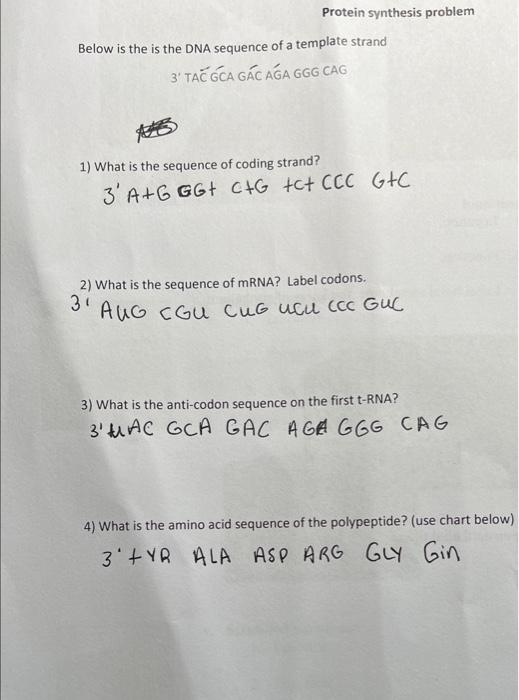 Protein synthesis problem
Below is the is the DNA sequence of a template strand
3' TAC GCA GAC AGA GGG CAG
1) What is the sequence of coding strand?
3' A+G GGt C+G tct CCC GtC
2) What is the sequence of mRNA? Label codons.
3' AUG CGU CUG UCU CCC GUC
3) What is the anti-codon sequence on the first t-RNA?
3' UAC GCA GAC AGA GGG CAG
4) What is the amino acid sequence of the polypeptide? (use chart below)
3' tYR ALA ASP ARG GLY Gin